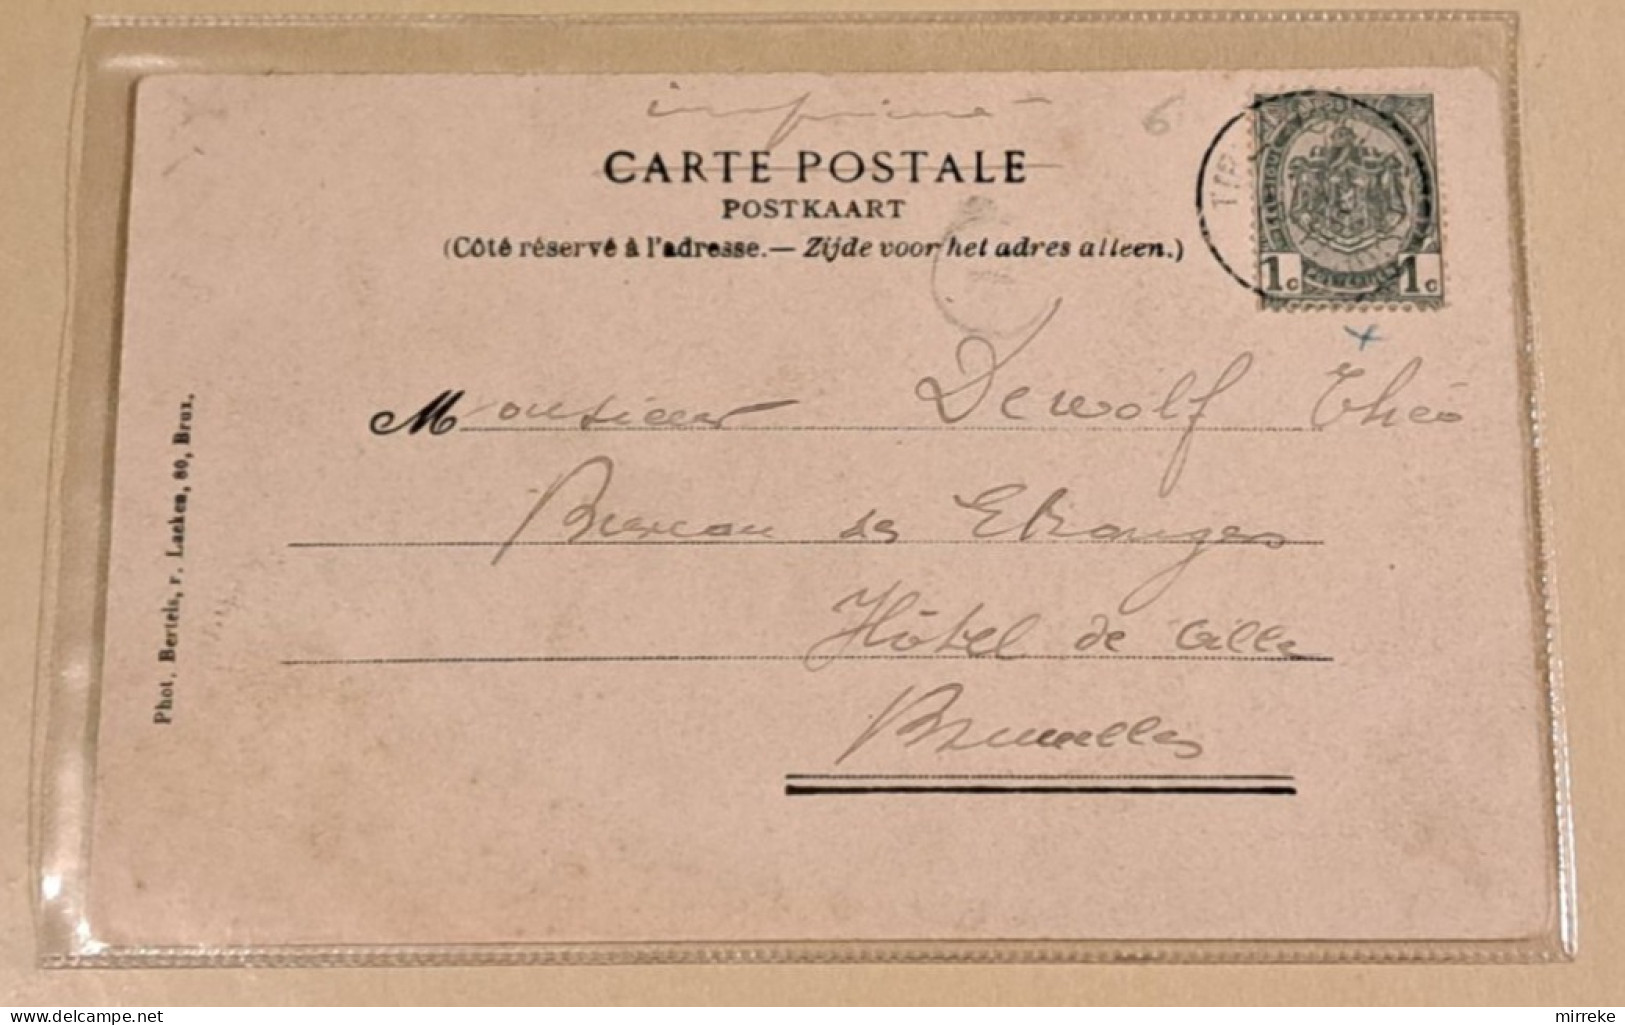 imprimé
6
CARTE POSTALE
POSTKAART
(Côté réservé à l'adresse.— Zijde voor het adres alleen.)
1c 1c
Monsieur Dewolf Théo
Bureau des Etrangers
Hôtel de Ville
Bruxelles
Phot. Bertels, r. Laeken, 80, Brux.
delcampe.net
mirreke